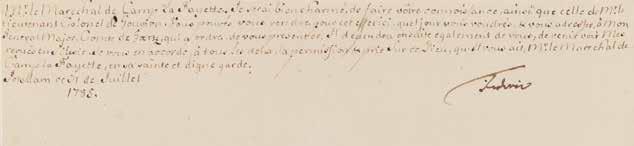 Mr. le Marechal de Camp la Fayette, Je serai bien charmé, de faire votre connoissance, ainsi que celle de Mr. le
Lieutenant Colonel de Gouvion. Vous pouvés vous rendre avec cet officier, quel jour vous voudrés, & vous adresser, à Mon
General Major, Comte de Gortz, qui a ordre, de vous presenter. Il dependra ensuite également de vous, de venir voir Mes
revües en Silesie. Je vous en accorde, à tous les deux, la permission, & prie sur ce Dieu, qu'Il vous ait, Mr. le Marechal de
Camp la Fayette, en sa sainte et digne garde.
Potsdam ce 31 de Juillet
1785.
Federic